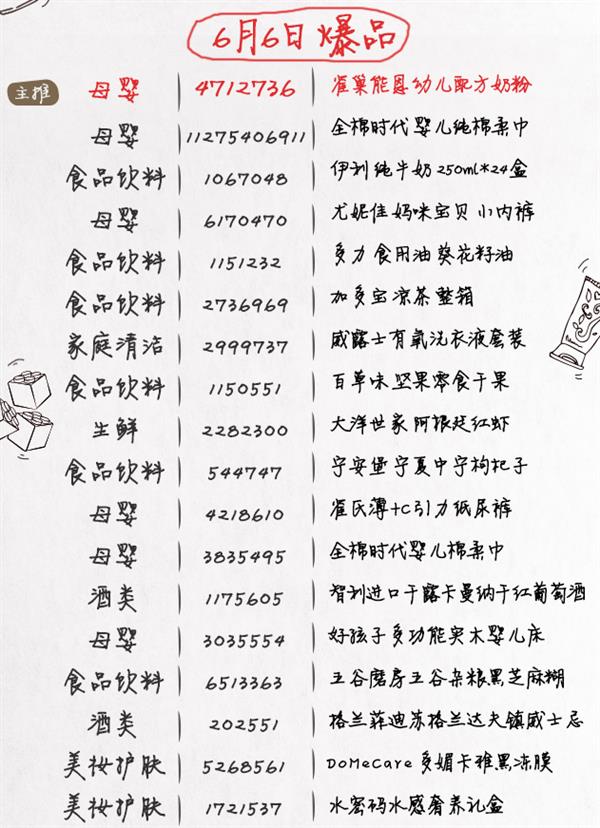 6月6日爆品
主推 母婴 4712736 雀巢能恩幼儿配方奶粉
母婴 11275406911 全棉时代婴儿纯棉柔巾
食品饮料 1067048 伊利纯牛奶250ml*24盒
母婴 6170470 尤妮佳妈咪宝贝小内裤
食品饮料 1151232 多力食用油葵花籽油
食品饮料 2736969 加多宝凉茶整箱
家庭清洁 2999737 威露士有氧洗衣液套装
食品饮料 1150551 百草味坚果零食干果
生鲜 2282300 大洋世家阿根廷红虾
食品饮料 544747 宁安堡宁夏中宁枸杞子
母婴 4218610 雀氏薄+C引力纸尿裤
母婴 3835495 全棉时代婴儿棉柔巾
酒类 1175605 智利进口干露卡曼纳干红葡萄酒
母婴 3035554 好孩子多功能实木婴儿床
食品饮料 6513363 五谷磨房五谷杂粮黑芝麻糊
酒类 202551 格兰菲迪苏格兰达夫镇威士忌
美妆护肤 5268561 DoMeCare多媚卡雅黑冻膜
美妆护肤 1721537 水密码水感奢养礼盒